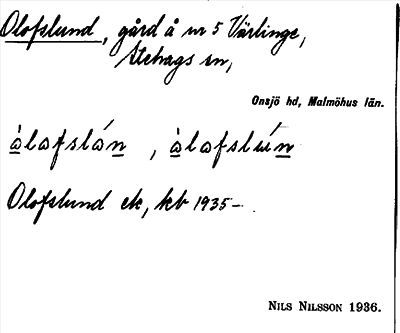 Olofslund, gård å nr 5 Värlinge,
Stehags sn,
Onsjö hd, Malmöhus län.
òlofslón , òlofslún
Olofslund ek, kb 1935-.
NILS NILSSON 1936.